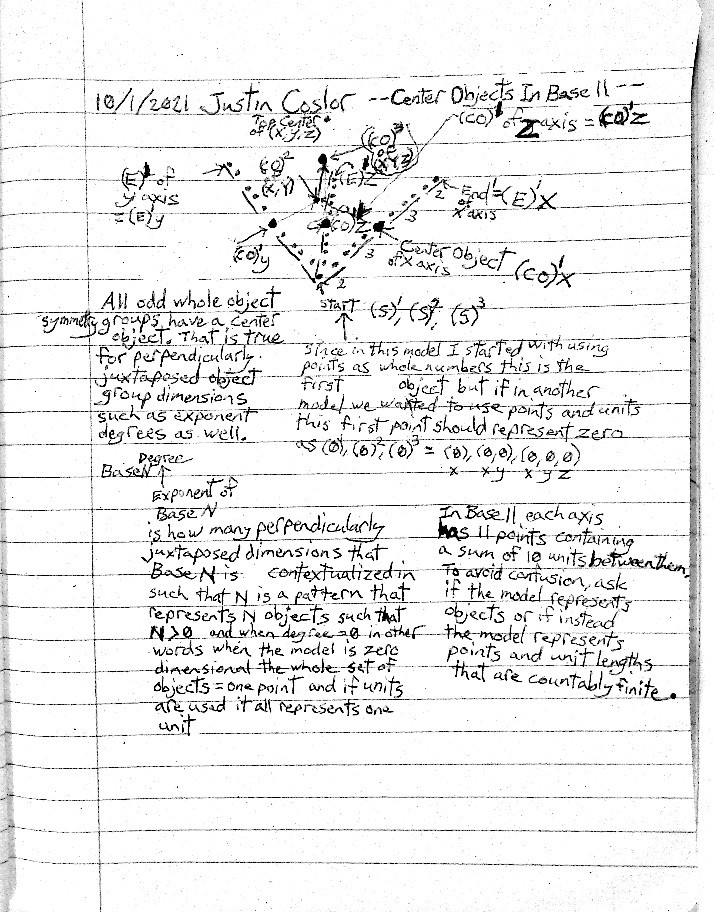 10/1/2021 Justin Coslor --Center Objects In Base 11 --
Top Center
of (x,y,z)
(CO)¹ of Z axis = (CO)¹z
(CO)³
of
(x,y,z)
(CO)²
(x,y)
(E)¹ of
y axis
= (E)¹y
(E)¹z
(CO)¹z
2
3
End = (E)¹x
of
x axis
(CO)¹y
3
2
Center Object (CO)¹x
of x axis
start (S)¹, (S)², (S)³
All odd whole object
symmetry groups have a center
object. That is true
for perpendicularly
juxtaposed object
group dimensions
such as exponent
degrees as well.
since in this model I started with using
points as whole numbers this is the
first object but if in another
model we wanted to use points and units
this first point should represent zero
as (0)¹, (0)², (0)³ = (0), (0,0), (0,0,0)
x xy x y z
Degree
Base N ↑
Exponent of
Base N
is how many perpendicularly
juxtaposed dimensions that
Base N is contextualized in
such that N is a pattern that
represents N objects such that
N>0 and when degree=0 in other
words when the model is zero
dimensional the whole set of
objects = one point and if units
are used it all represents one
unit
In Base 11 each axis
has 11 points containing
a sum of 10 units between them.
To avoid confusion, ask
if the model represents
objects or if instead
the model represents
points and unit lengths
that are countably finite.